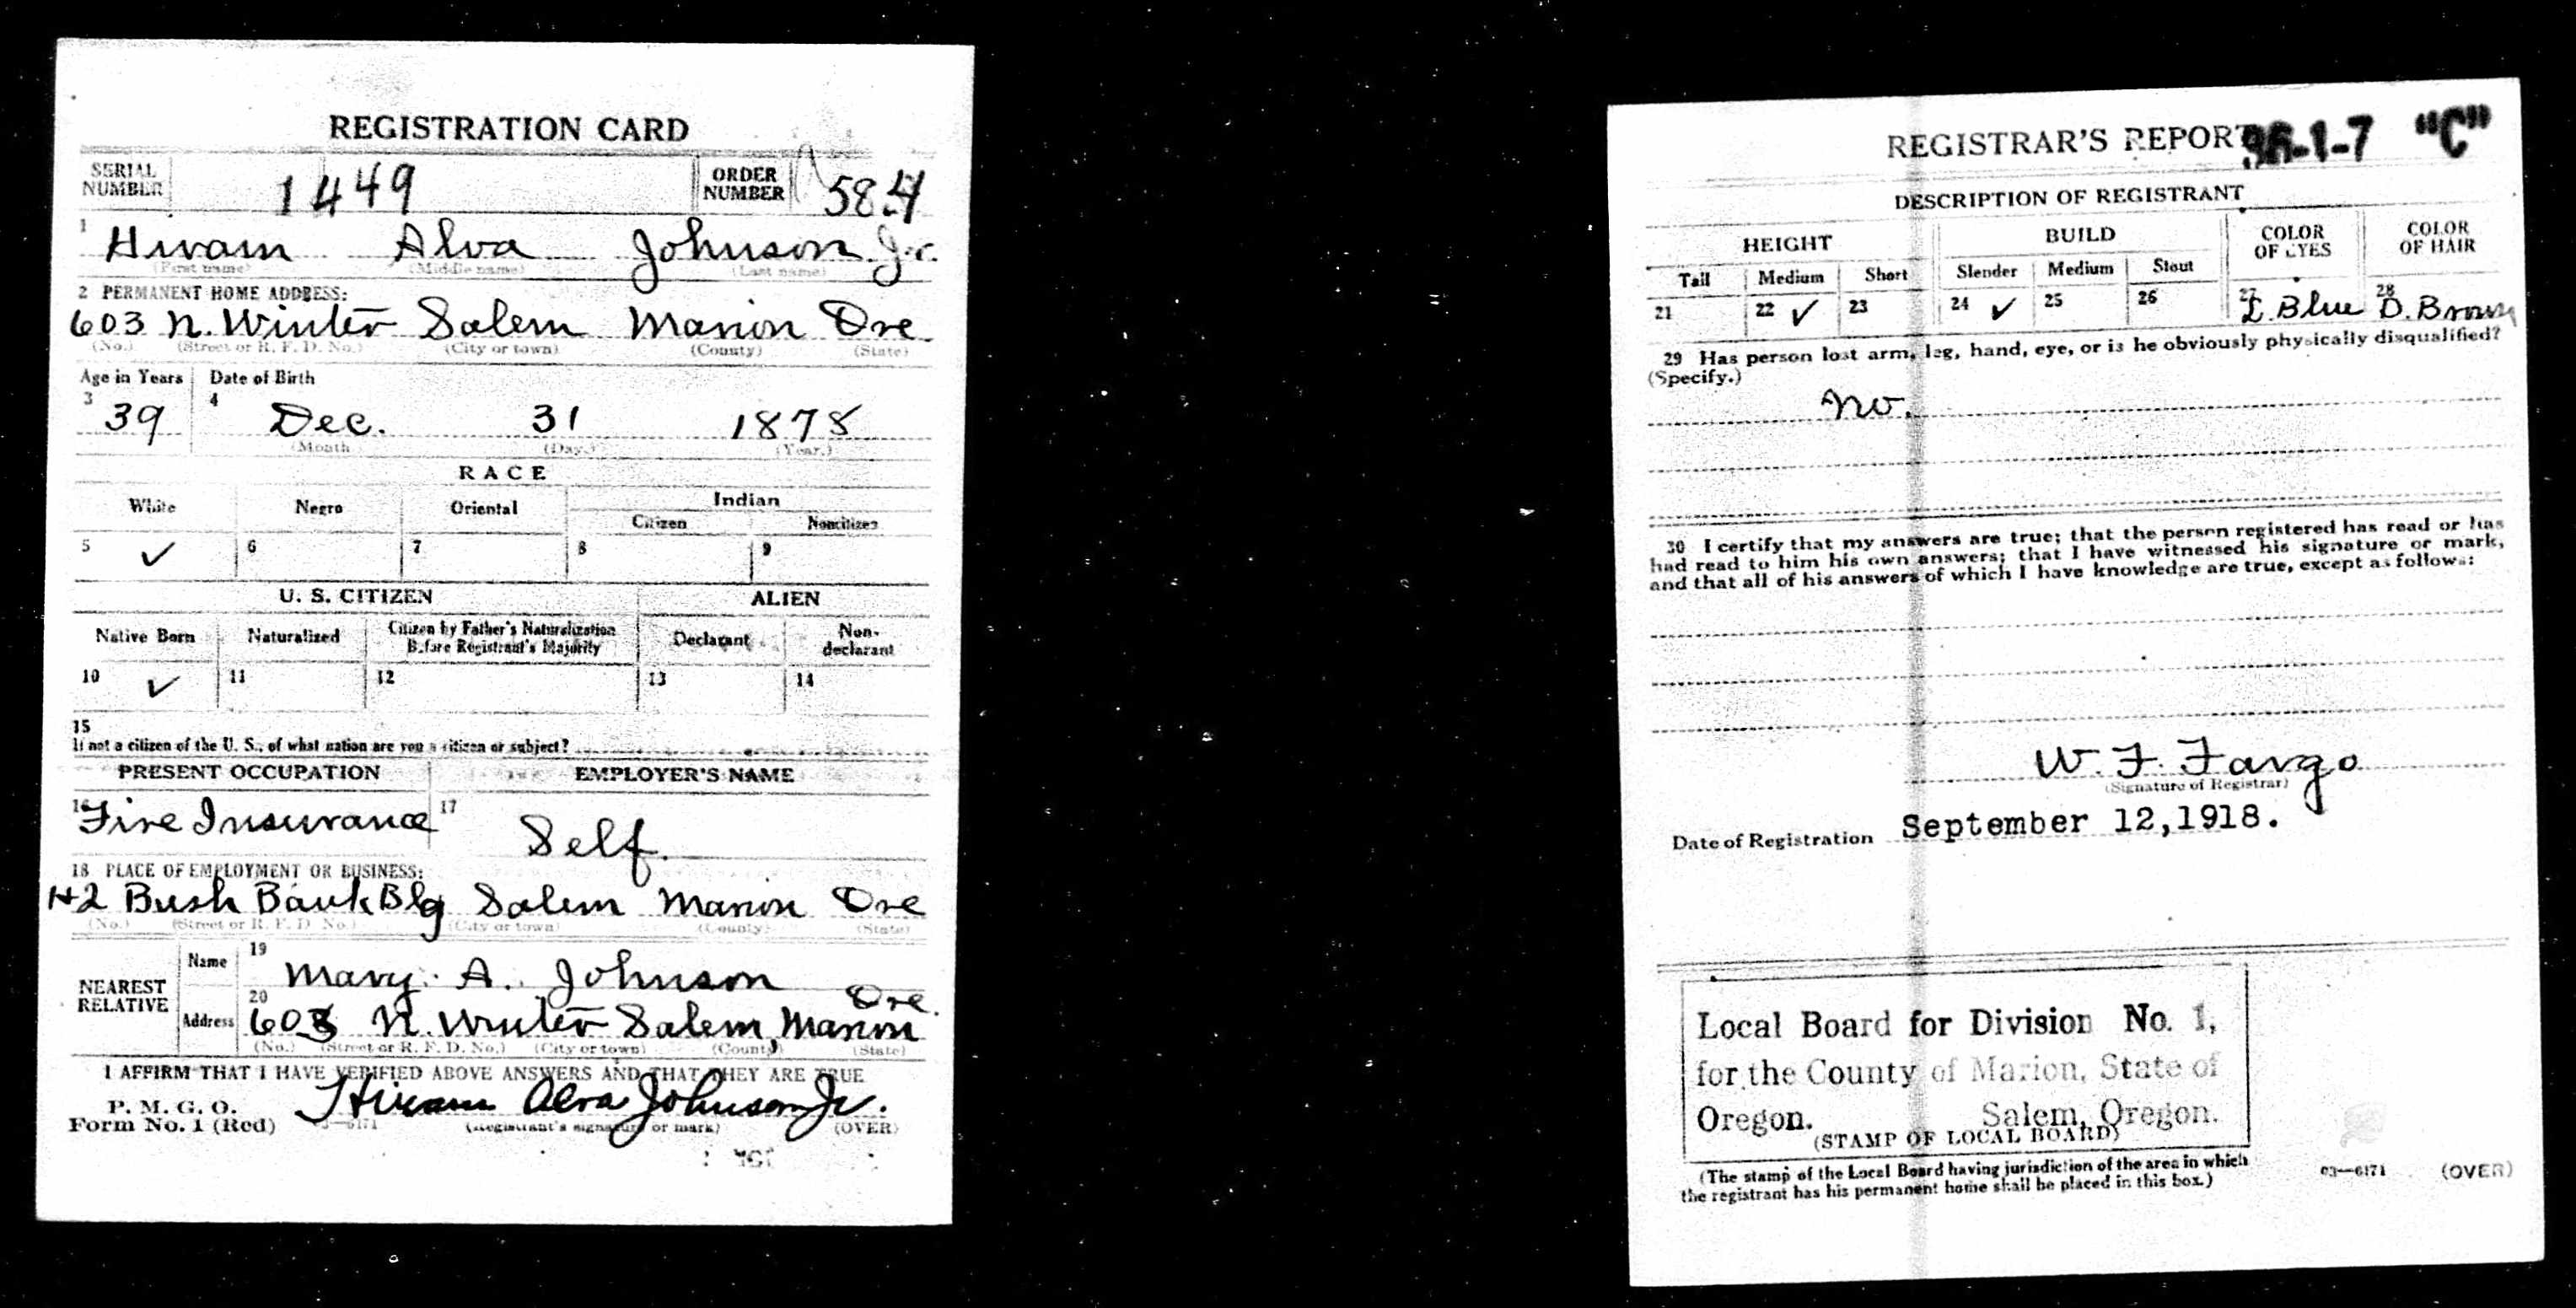 REGISTRATION CARD
SERIAL NUMBER 1449 ORDER NUMBER 584
1 Hiram Alva Johnson Jr.
(First name) (Middle name) (Last name)
2 PERMANENT HOME ADDRESS:
603 N. Winter Salem Marion Ore.
(No.) (Street or R. F. D. No.) (City or town) (County) (State)
Age in Years Date of Birth
3 39 4 Dec. 31 1878
(Month) (Day.) (Year.)
RACE
White Negro Oriental Indian
Citizen Noncitizen
5 ✓ 6 7 8 9
U. S. CITIZEN ALIEN
Native Born Naturalized Citizen by Father's Naturalization Before Registrant's Majority Declarant Non-declarant
10 ✓ 11 12 13 14
15
If not a citizen of the U. S., of what nation are you a citizen or subject?
PRESENT OCCUPATION EMPLOYER'S NAME
16 Fire Insurance 17 Self.
18 PLACE OF EMPLOYMENT OR BUSINESS:
42 Bush Bank Blg Salem Marion Ore
(No.) (Street or R. F. D. No.) (City or town) (County) (State)
NEAREST RELATIVE
Name 19 Mary. A. Johnson
Address 20 603 N. Winter Salem, Marion Ore.
(No.) (Street or R. F. D. No.) (City or town) (County) (State)
I AFFIRM THAT I HAVE VERIFIED ABOVE ANSWERS AND THAT THEY ARE TRUE
P. M. G. O.
Form No. 1 (Red) Hiram Alva Johnson Jr.
(Registrant's signature or mark) (OVER)
REGISTRAR'S REPORT 36-1-7 "C"
DESCRIPTION OF REGISTRANT
HEIGHT BUILD COLOR OF EYES COLOR OF HAIR
Tall Medium Short Slender Medium Stout
21 22 ✓ 23 24 ✓ 25 26 27 L. Blue 28 D. Brown
29 Has person lost arm, leg, hand, eye, or is he obviously physically disqualified?
(Specify.)
No.
30 I certify that my answers are true; that the person registered has read or has
had read to him his own answers; that I have witnessed his signature or mark,
and that all of his answers of which I have knowledge are true, except as follows:
W. F. Fargo
(Signature of Registrar)
Date of Registration September 12,1918.
Local Board for Division No. 1,
for the County of Marion, State of
Oregon. Salem, Oregon.
(STAMP OF LOCAL BOARD)
(The stamp of the Local Board having jurisdiction of the area in which
the registrant has his permanent home shall be placed in this box.)
03—6171 (OVER)